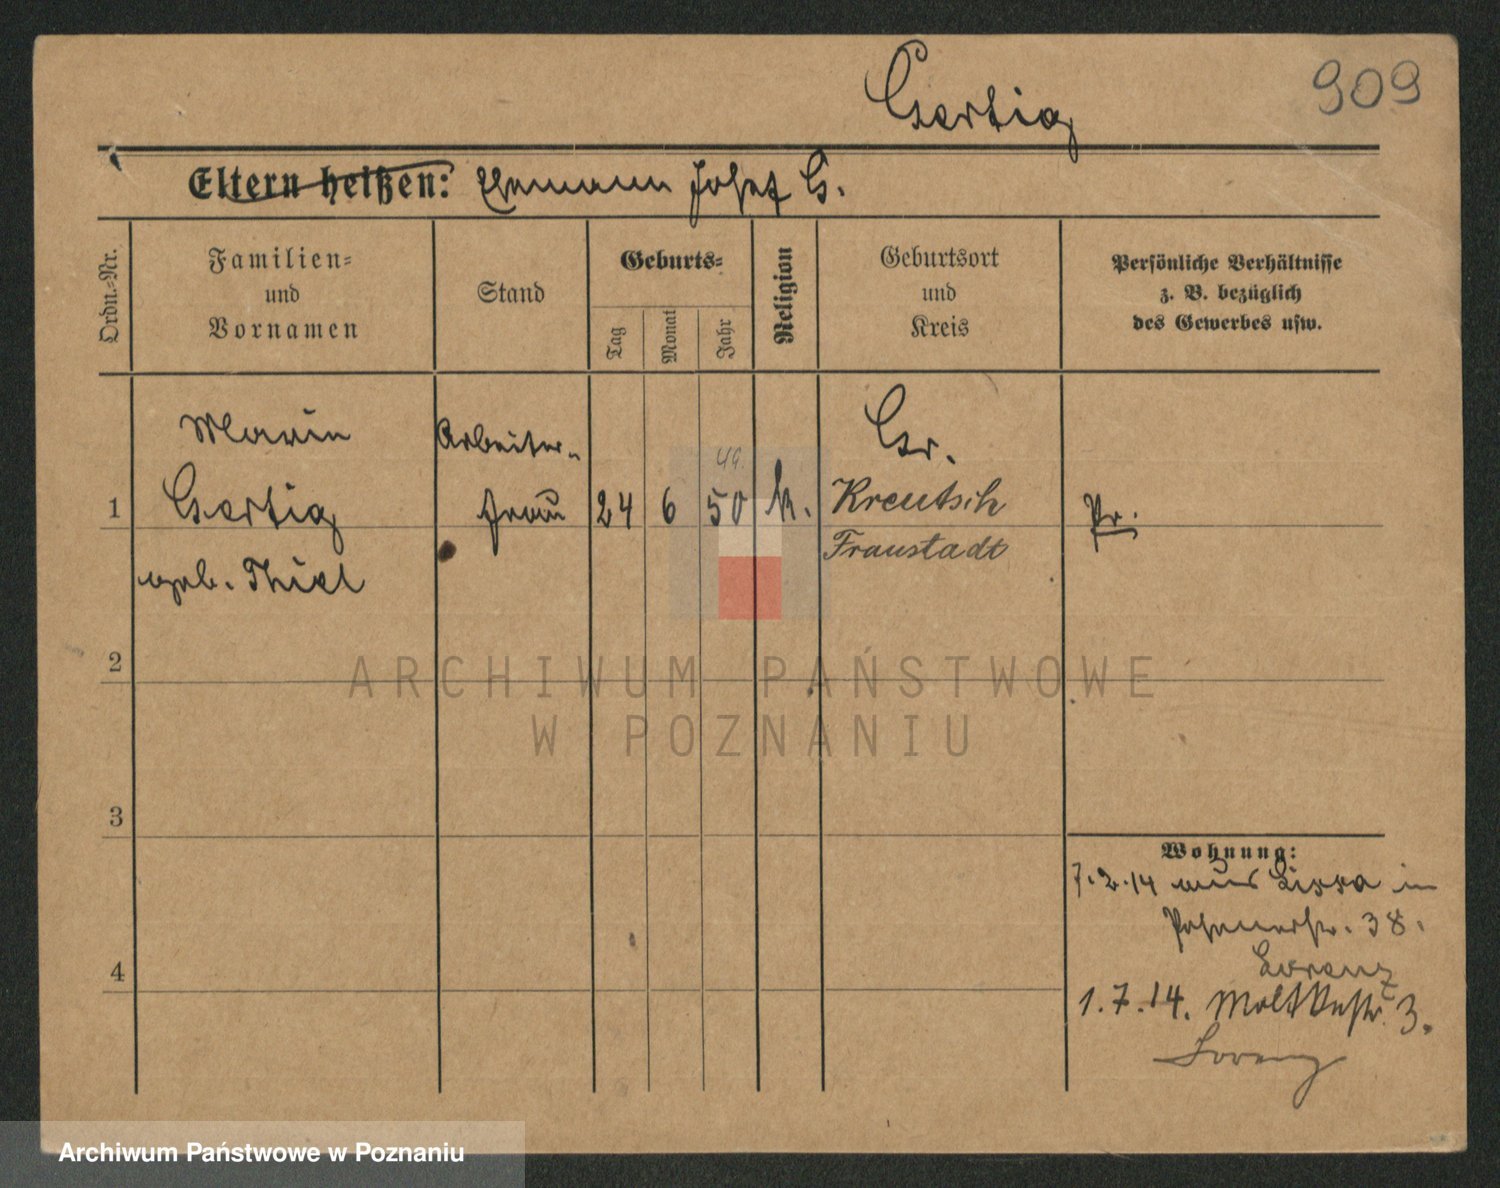 Gertig
909
Eltern heißen: Ehemann Josef G.
Ordn.-Nr.
Familien-
und
Vornamen
Stand
Geburts-
Tag
Monat
Jahr
Religion
Geburtsort
und
Kreis
Persönliche Verhältnisse
z. B. bezüglich
des Gewerbes usw.
1
Marie
Gertig
geb. Thiel
Arbeiter-
frau
24
6
49.
50
k.
Gr.
Kreutsch
Fraustadt
Pr.
2
3
4
Wohnung:
7.2.14 aus Lissa in
Posenerstr. 38.
Lorenz
1.7.14. Moltkestr. 3.
Lorenz
ARCHIWUM PAŃSTWOWE
W POZNANIU
Archiwum Państwowe w Poznaniu